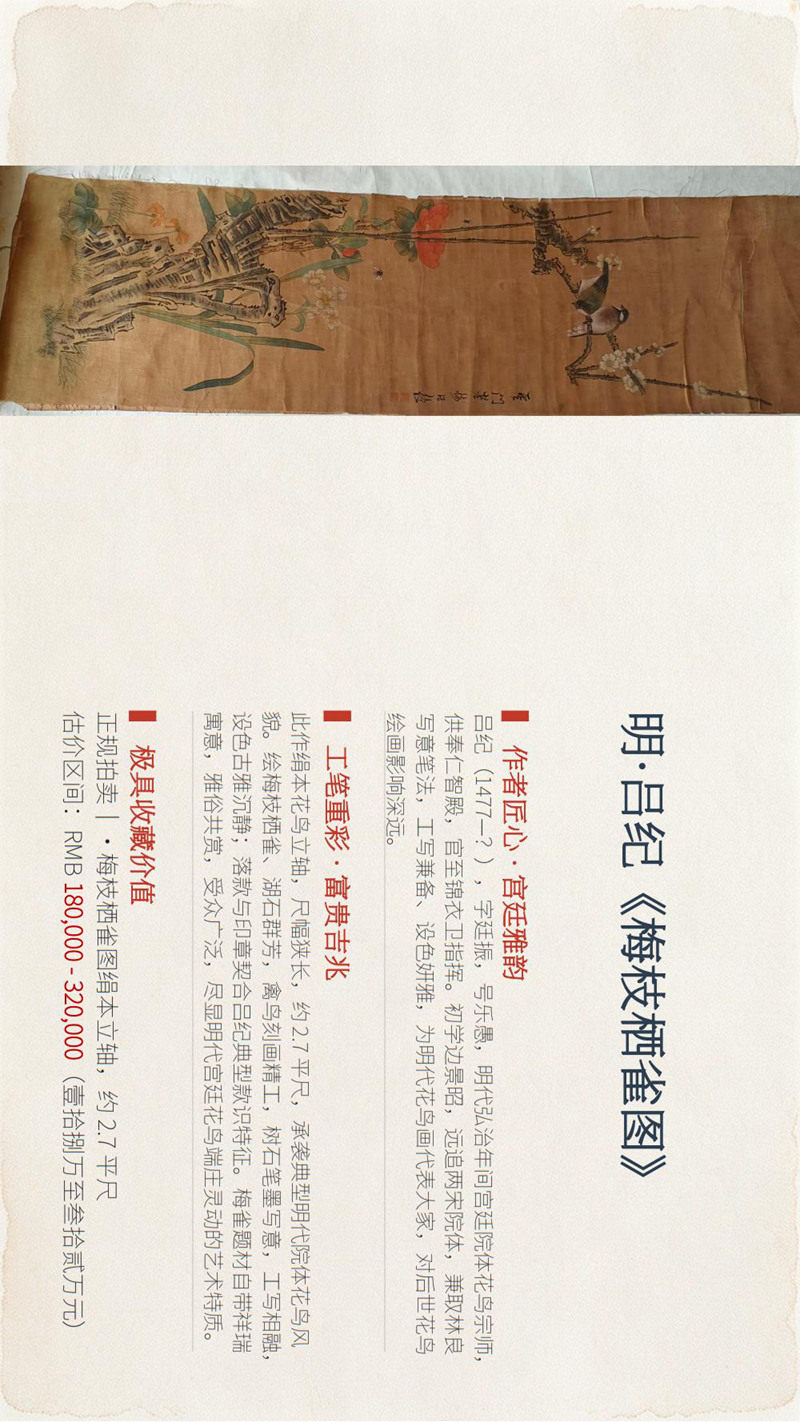 明·吕纪《梅枝栖雀图》
作者匠心·宫廷雅韵
吕纪（1477—？），字廷振，号乐愚，明代弘治年间宫廷院体花鸟宗师，
供奉仁智殿，官至锦衣卫指挥。初学边景昭，远追两宋院体，兼取林良
写意笔法，工写兼备、设色妍雅，为明代花鸟画代表大家，对后世花鸟
绘画影响深远。
工笔重彩·富贵吉兆
此作绢本花鸟立轴，尺幅狭长，约 2.7 平尺，承袭典型明代院体花鸟风
貌。绘梅枝栖雀、湖石群芳，禽鸟刻画精工，树石笔墨写意，工写相融，
设色古雅沉静；落款与印章契合吕纪典型款识特征。梅雀题材自带祥瑞
寓意，雅俗共赏，受众广泛，尽显明代宫廷花鸟端庄灵动的艺术特质。
极具收藏价值
正规拍卖丨·梅枝栖雀图绢本立轴，约 2.7 平尺
估价区间：RMB 180,000 - 320,000（壹拾捌万至叁拾贰万元）